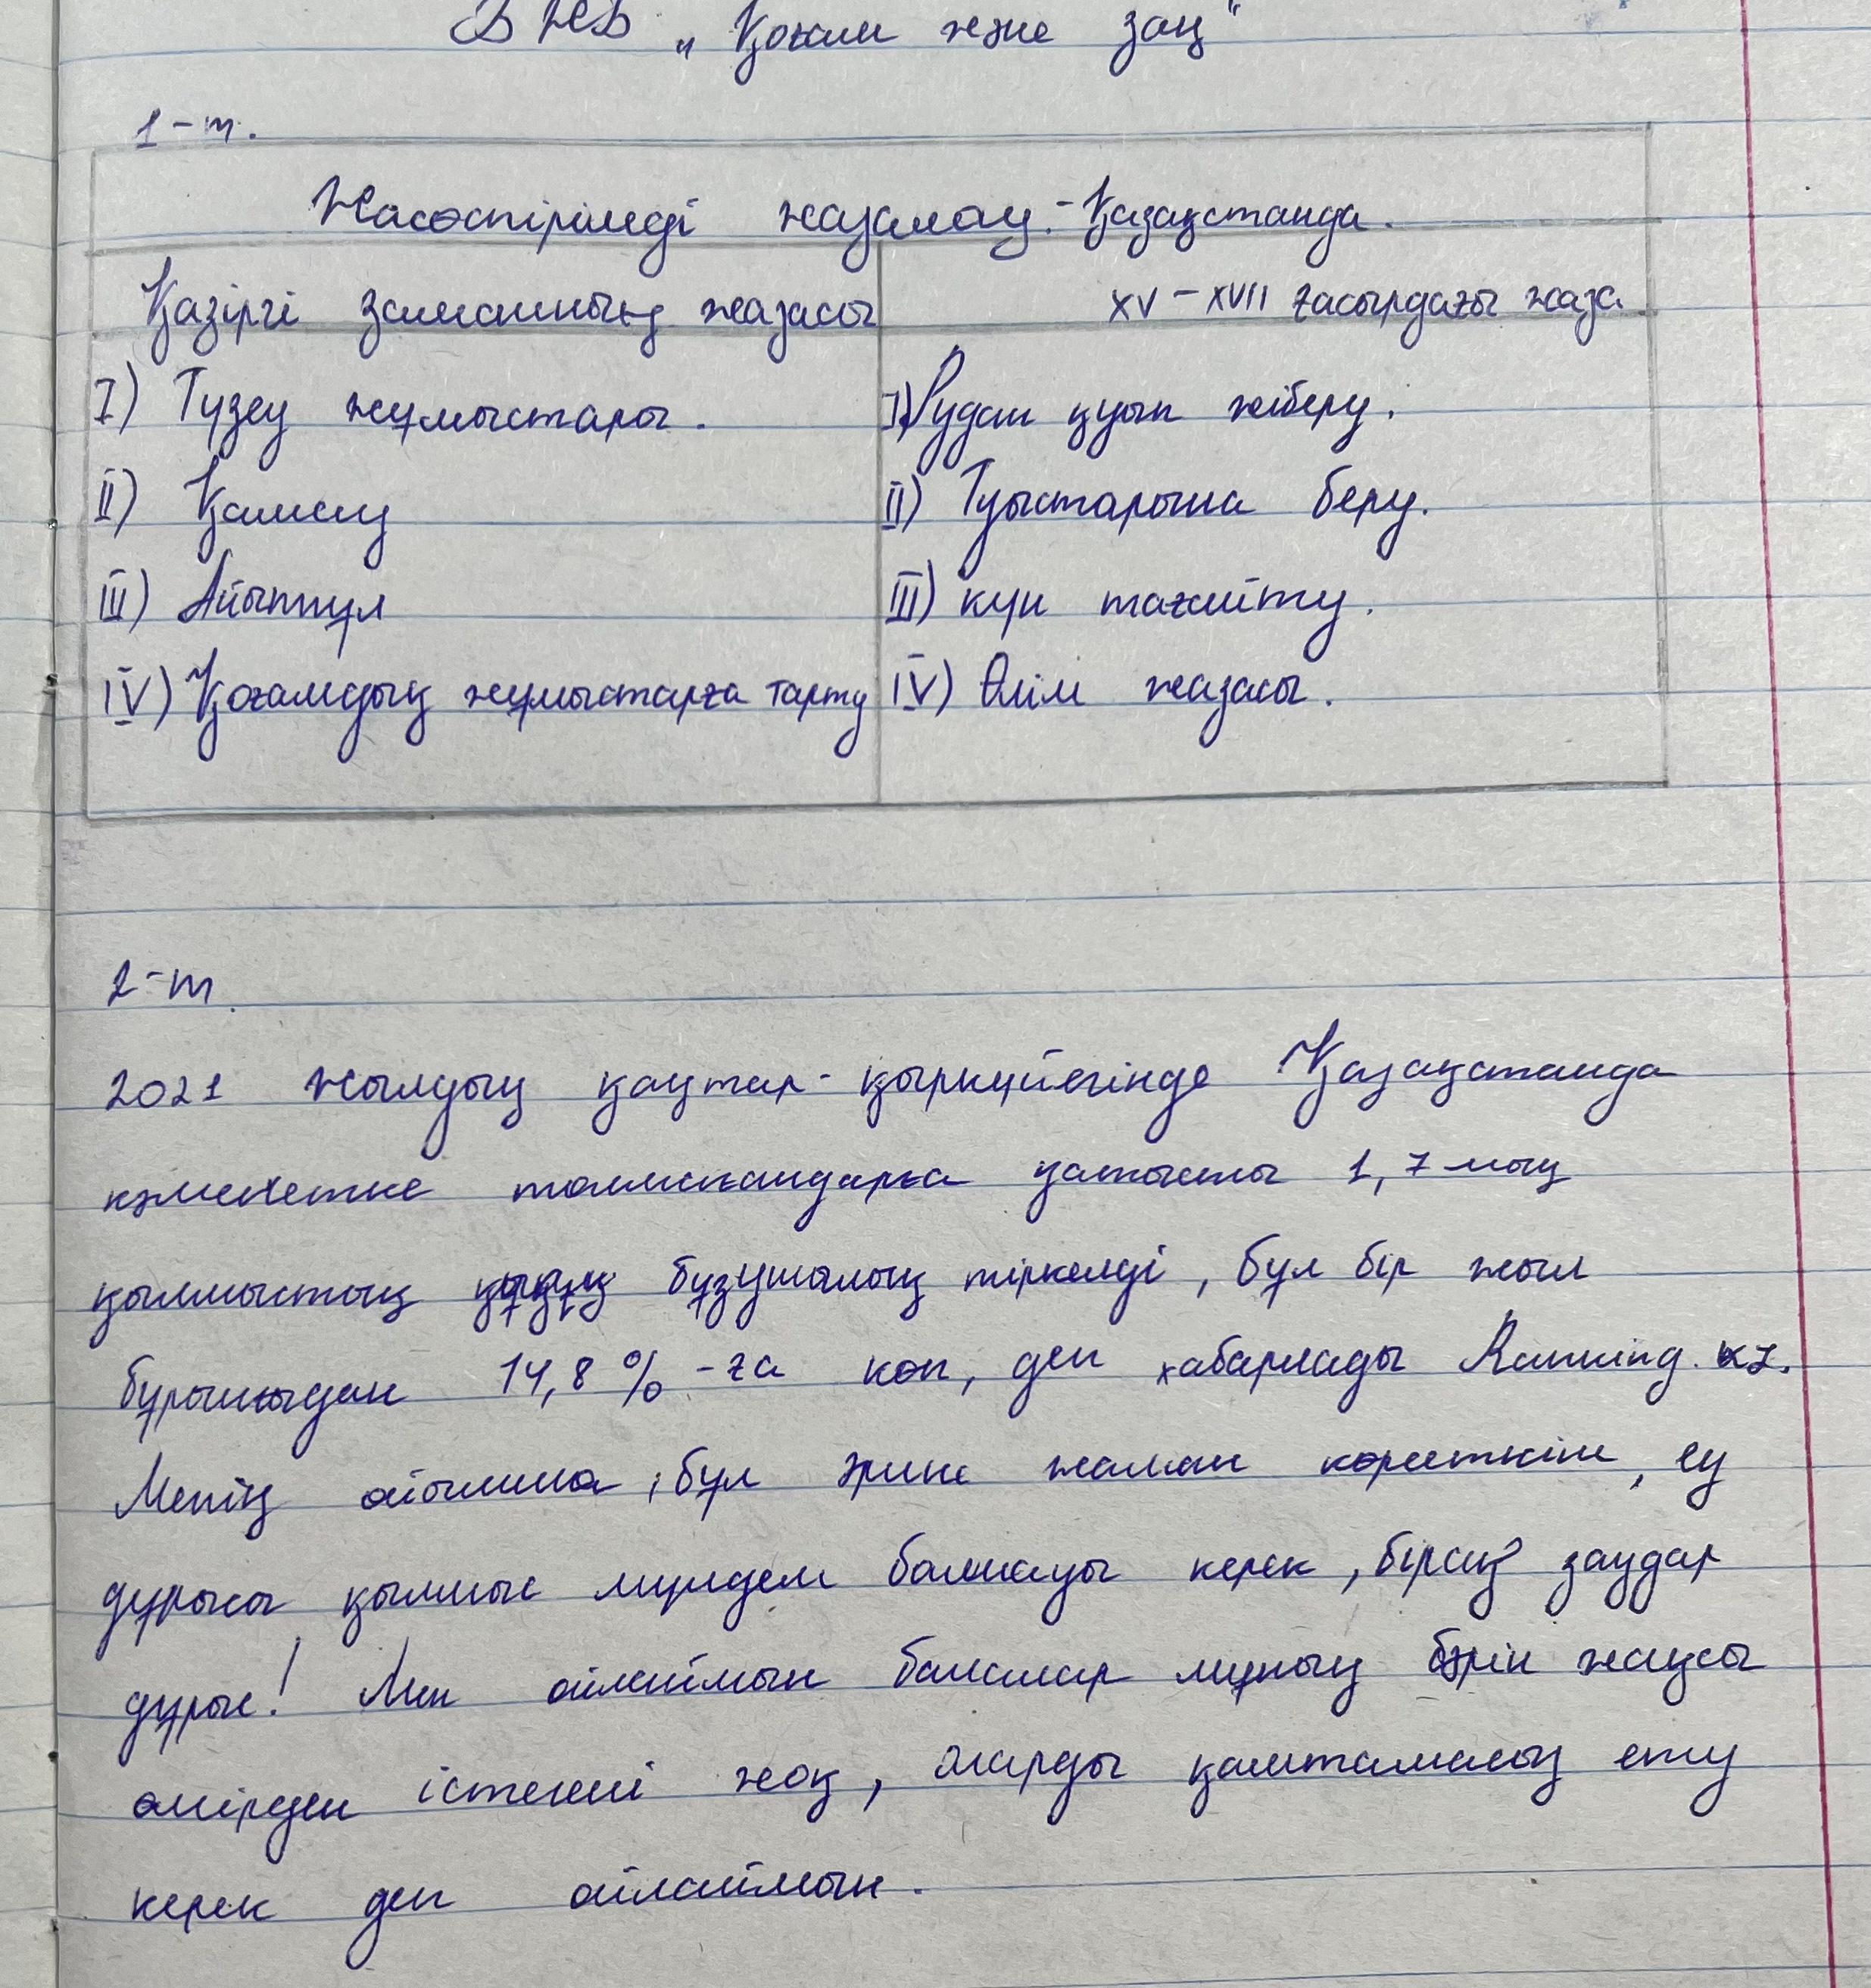 БЖБ „Қоғам және заң“
1-т.
Жасөспірімді жазалау.-Қазақстанда.
Қазіргі заманның жазасы
XV – XVII ғасырдағы жаза.
I) Түзеу жұмыстары.
I) Рудан қуып жіберу.
II) Қамау
II) Туыстарына беру.
III) Айыппұл
III) құн тағайту.
IV) Қоғамдық жұмыстарға тарту
IV) Өлім жазасы.
2-т
2021 Жылдың қаңтар-қыркүйегінде Қазақстанда
кәмелетке толмағандарға қатысты 1,7 мың
қылмыстық құқық бұзушылық тіркелді, бұл бір жыл
бұрынғыдан 14,8 % -ға көп, деп хабарлады Ranking.kz.
Менің ойымша, бұл әрине жаман көрсеткіш, ең
дұрысы қылмыс мүлдем болмауы керек, бірақ заңдар
дұрыс! Мен ойлаймын балалар мұның бәрін жақсы
өмірден істегені жоқ, оларды қамтамасыз ету
керек деп ойлаймын.